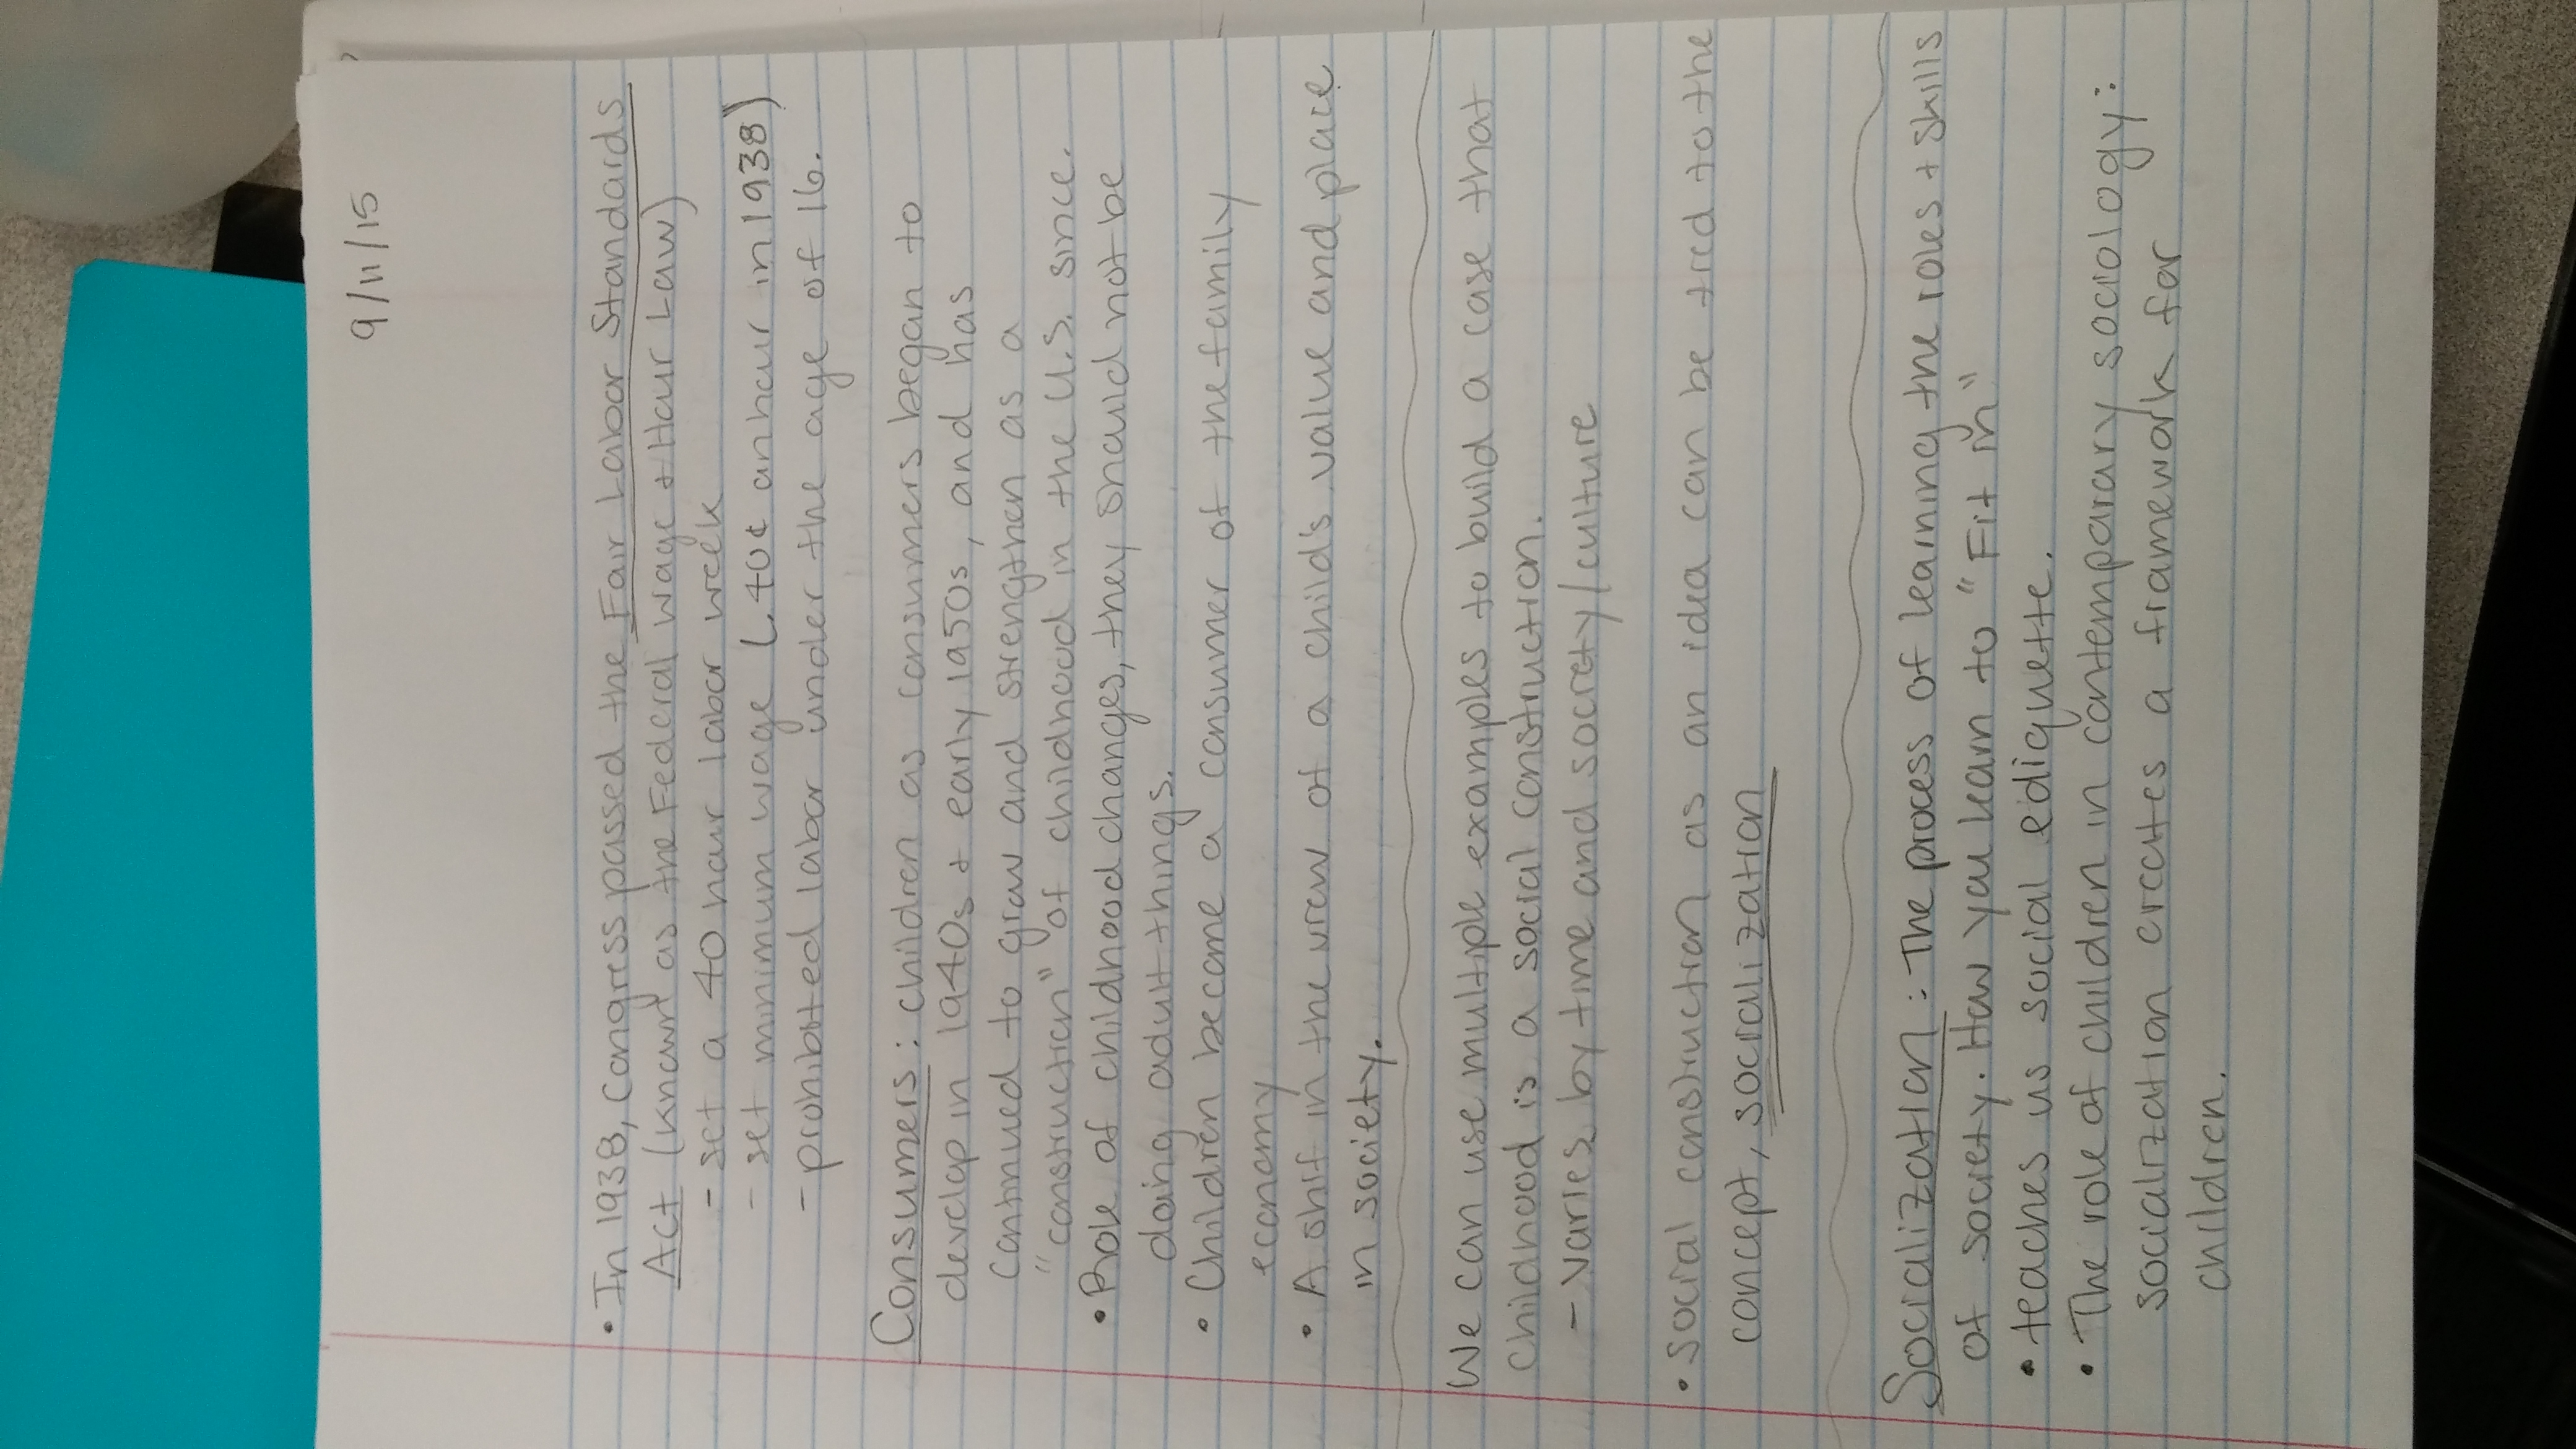 9/11/15
• In 1938, Congress passed the Fair Labor Standards
Act (known as the Federal wage + Hour Law)
- set a 40 hour labor week
- set minimum wage (.40¢ an hour in 1938)
- prohibited labor under the age of 16.
Consumers: children as consumers began to
develop in 1940s + early 1950s, and has
continued to grow and strengthen as a
"construction" of childhood in the U.S. since.
• Role of childhood changes, they should not be
doing adult things.
• Children become a consumer of the family
economy
• A shif in the view of a childs value and place
in society.
We can use multiple examples to build a case that
Childhood is a social construction.
- varies by time and society/culture
• Social construction as an idea can be tied to the
concept, socialization
Socialization: The process of learning the roles + skills
of society. How you learn to "Fit in"
• teaches us social ediquette.
• The role of children in contemporary sociology:
socialization creates a framework for
children.